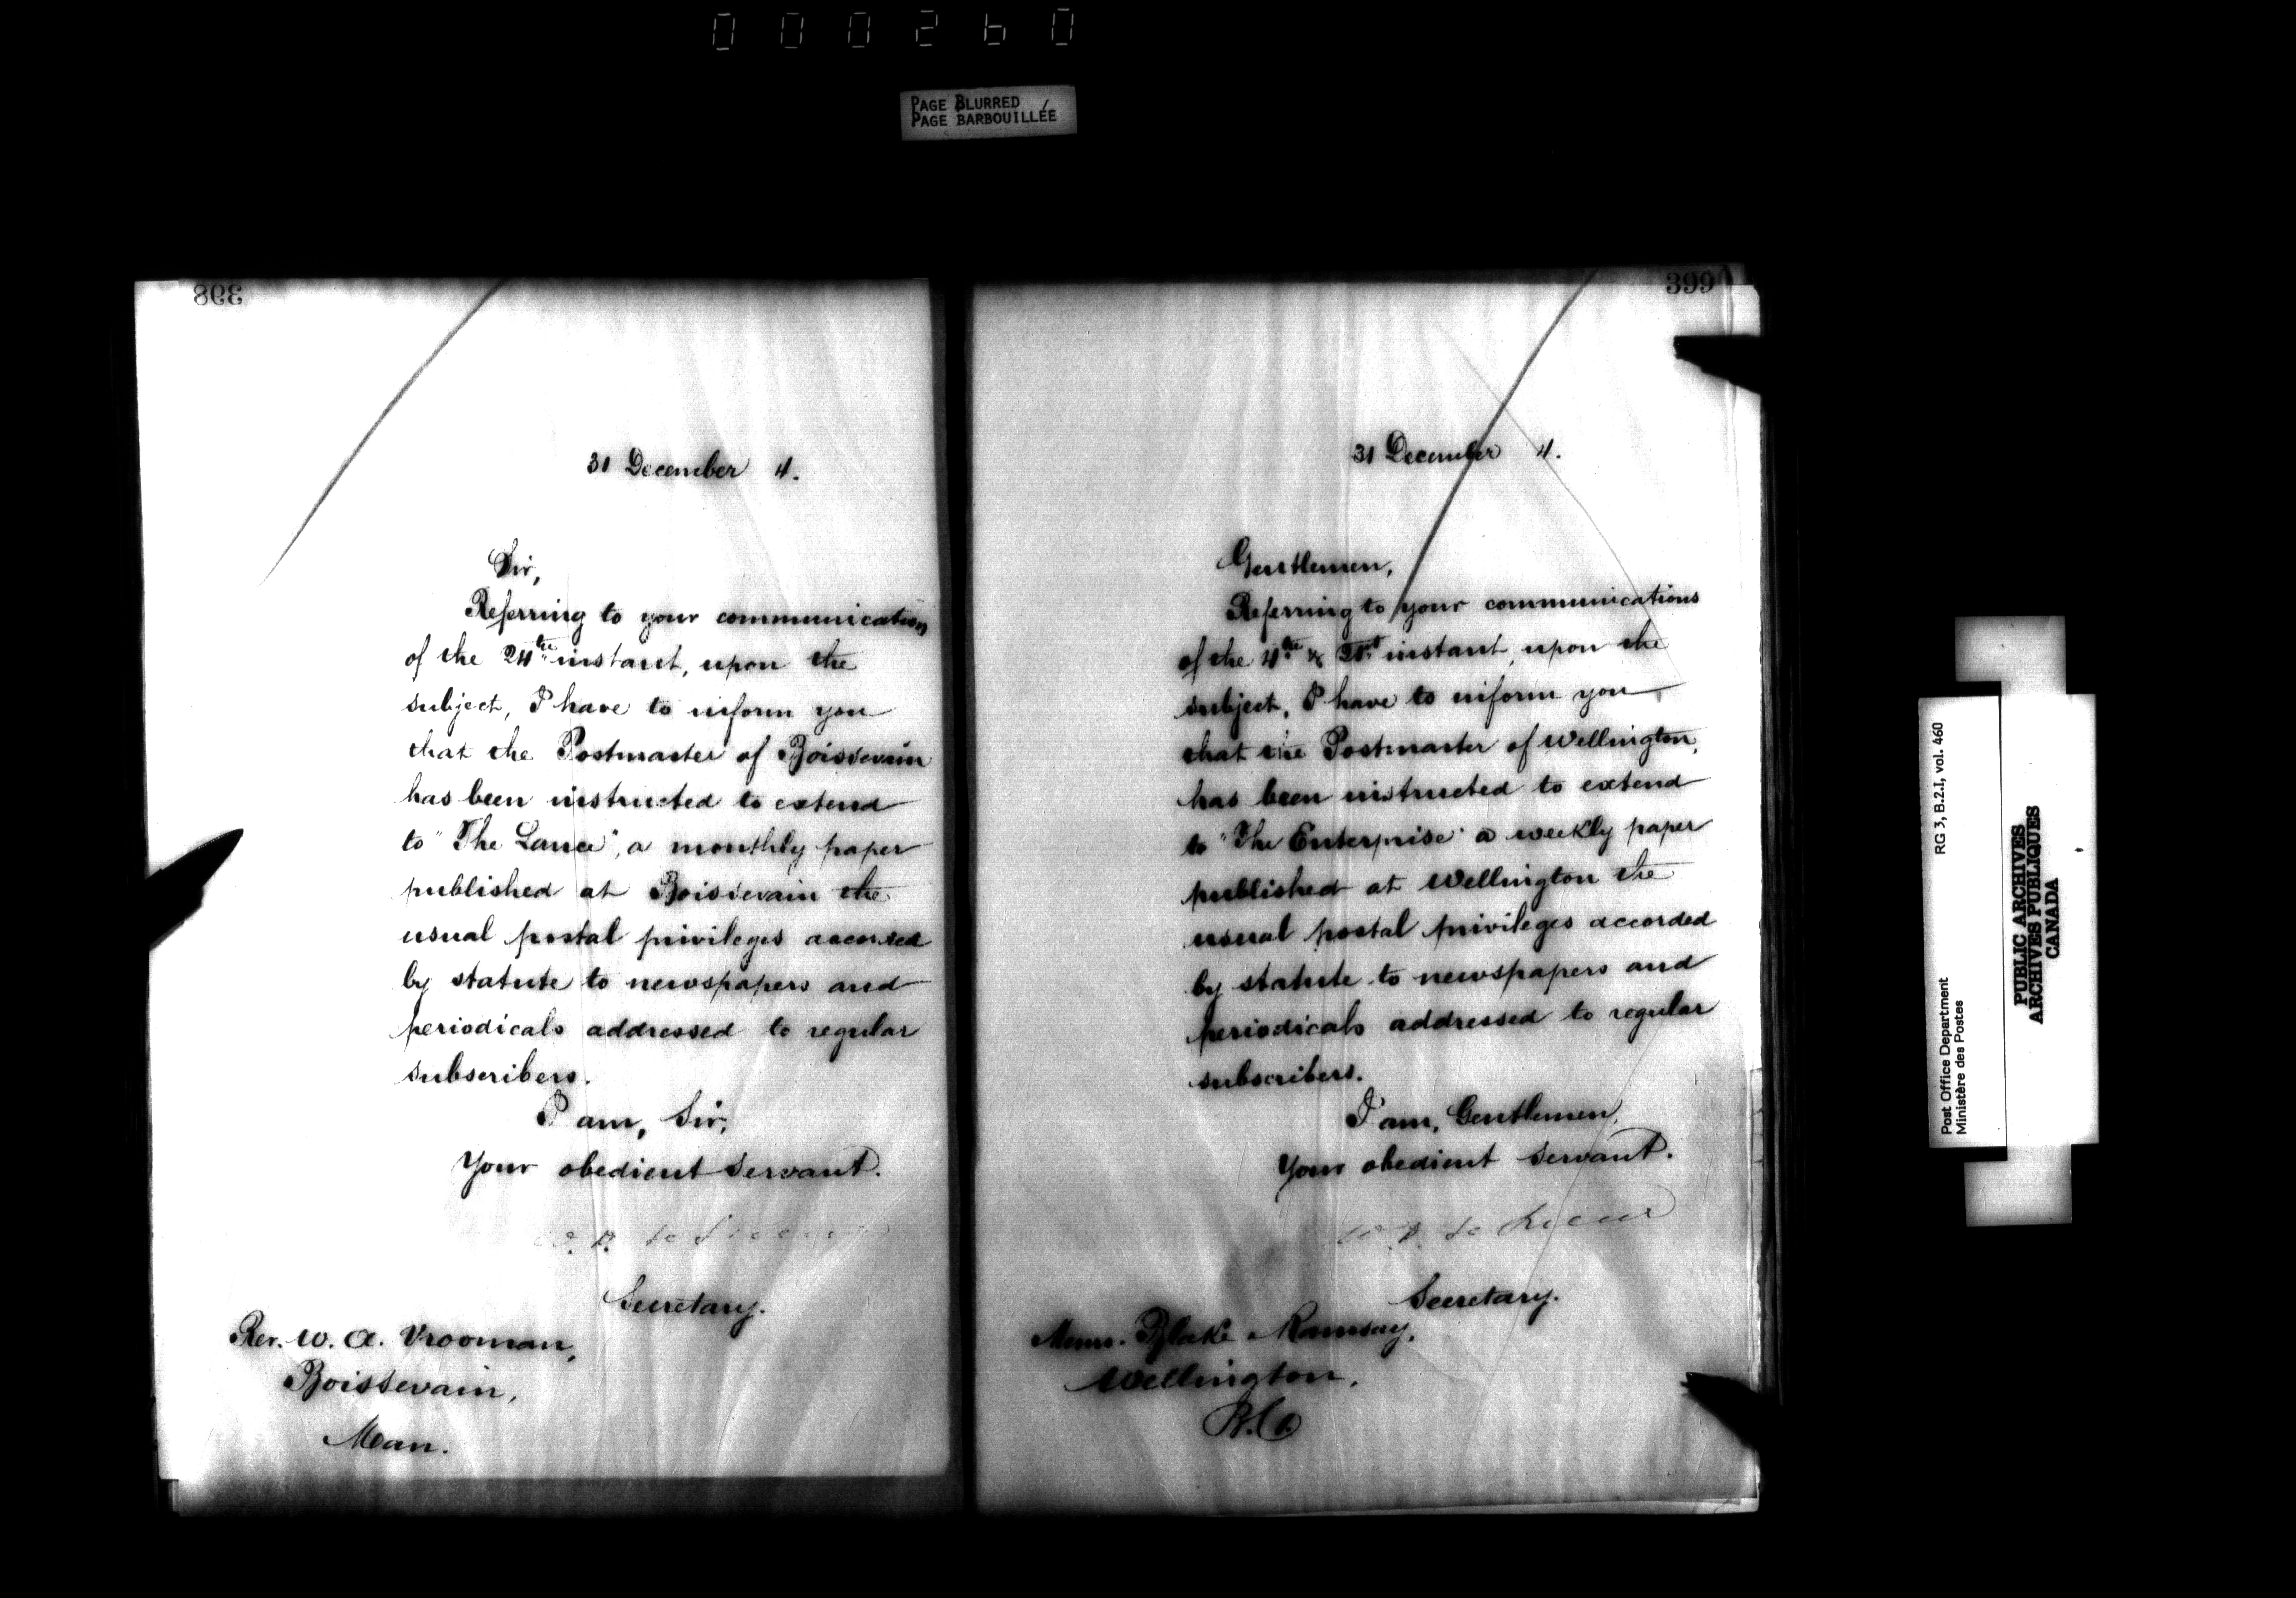 000260
PAGE BLURRED
PAGE BARBOUILLÉE
398
31 December 4.
Sir,
Referring to your communication
of the 24th instant, upon the
subject, I have to inform you
that the Postmaster of Boissevain
has been instructed to extend
to "The Lance", a monthly paper
published at Boissevain the
usual postal privileges accorded
by statute to newspapers and
periodicals addressed to regular
subscribers.
I am, Sir,
Your obedient servant.
W. D. Le Sueur
Secretary.
Rev. W. A. Vrooman,
Boissevain,
Man.
399
31 December 4.
Gentlemen,
Referring to your communications
of the 4th & 21st instant, upon the
subject, I have to inform you
that the Postmaster of Wellington,
has been instructed to extend
to "The Enterprise" a weekly paper
published at Wellington the
usual postal privileges accorded
by statute to newspapers and
periodicals addressed to regular
subscribers.
I am, Gentlemen,
Your obedient servant.
W. D. Le Sueur
Secretary.
Messrs. Blake Ramsay,
Wellington,
B.C.
RG 3, B.2.I, vol. 460
Post Office Department
Ministère des Postes
PUBLIC ARCHIVES
ARCHIVES PUBLIQUES
CANADA